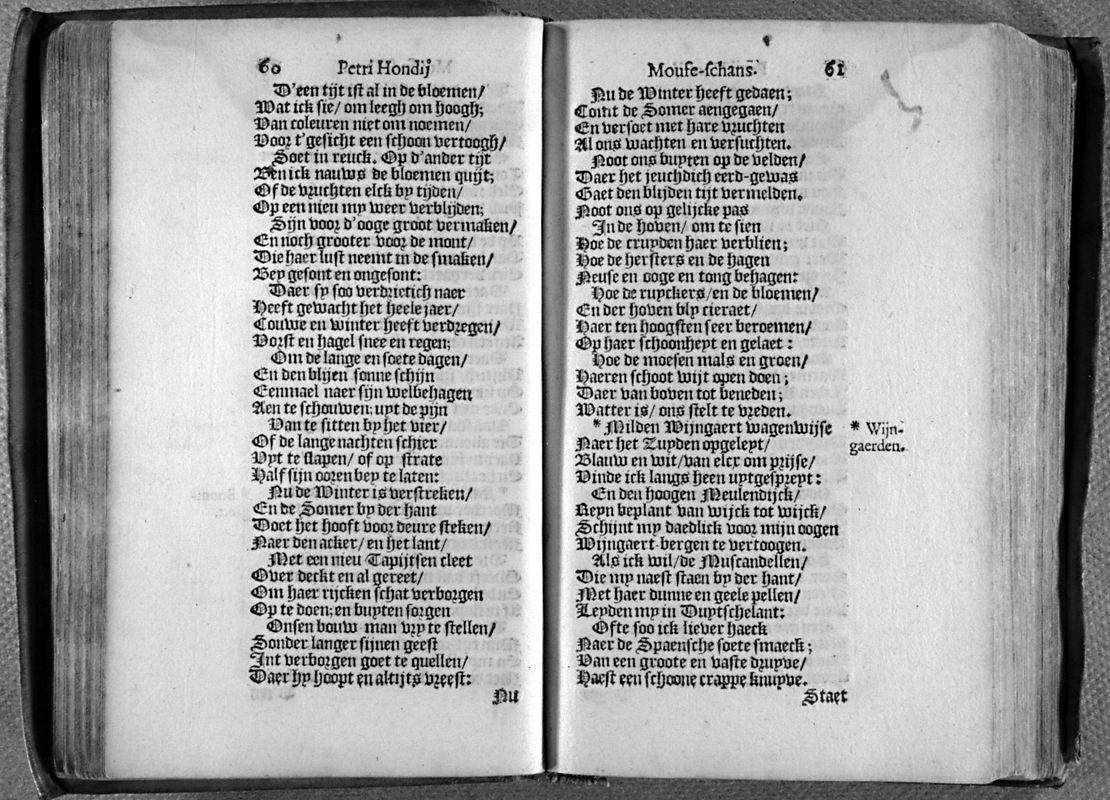 60 Petri Hondij
D'een tijt ist al in de bloemen/
Wat ick sie/ om leegh om hoogh;
Van coleuren niet om noemen/
Voor t'gesicht een schoon vertoogh/
Soet in reuck. Op d'ander tijt
Ben ick nauws de bloemen quijt;
Of de vruchten elck by tijden/
Op een nieu my weer verblijden;
Sijn voor d'ooge groot vermaken/
En noch grooter voor de mont/
Die haer lust neemt in de smaken/
Bey gesont en ongesont:
Daer sy soo verdrietich naer
Heeft gewacht het heele jaer/
Couwe en winter heeft verdregen/
Vorst en hagel snee en regen;
Om de lange en soete dagen/
En den blijen sonne schijn
Eenmael naer sijn welbehagen
Aen te schouwen; uyt de pijn
Van te sitten by het vier/
Of de lange nachten schier
Uyt te slapen/ of op strate
Half sijn ooren bey te laten:
Nu de Winter is verstreken/
En de Somer by der hant
Doet het hooft voor deure steken/
Naer den acker/ en het lant/
Met een nieu Tapijtsen cleet
Over deckt en al gereet/
Om haer rijcken schat verborgen
Op te doen; en buyten sorgen
Onsen bouw-man vry te stellen/
Sonder langer sijnen geest
Int verborgen goet te quellen/
Daer hy hoopt en altijts vreest:
Nu
Moufe-schans. 61
Nu de Winter heeft gedaen;
Comt de Somer aengegaen/
En versoet met hare vruchten
Al ons wachten en versuchten.
Noot ons buyten op de velden/
Daer het jeuchdich eerd-gewas
Gaet den blijden tijt vermelden.
Noot ons op gelijcke pas
In de hoven/ om te sien
Hoe de cruyden haer verblien;
Hoe de hersters en de hagen
Neuse en ooge en tong behagen:
Hoe de ruyckers/en de bloemen/
En der hoven bly cieraet/
Haer ten hoogsten seer beroemen/
Op haer schoonheyt en gelaet:
Hoe de moesen mals en groen/
Haeren schoot wijt open doen;
Daer van boven tot beneden;
Watter is/ ons stelt te vreden.
* Milden Wijngaert wagenwijse
Naer het Zuyden opgeleyt/
Blauw en wit/van elcx om prijse/
Vinde ick langs heen uytgespreyt:
En den hoogen Meulendijck/
Reyn beplant van wijck tot wijck/
Schijnt my daedlick voor mijn oogen
Wijngaert-bergen te vertoogen.
Als ick wil/de Muscandellen/
Die my naest staen by der hant/
Met haer dunne en geele pellen/
Leyden my in Duytschelant:
Ofte soo ick liever haeck
Naer de Spaensche soete smaeck;
Van een groote en vaste druyve/
Haest een schoone crappe knuyve.
Staet
* Wijn-
gaerden.